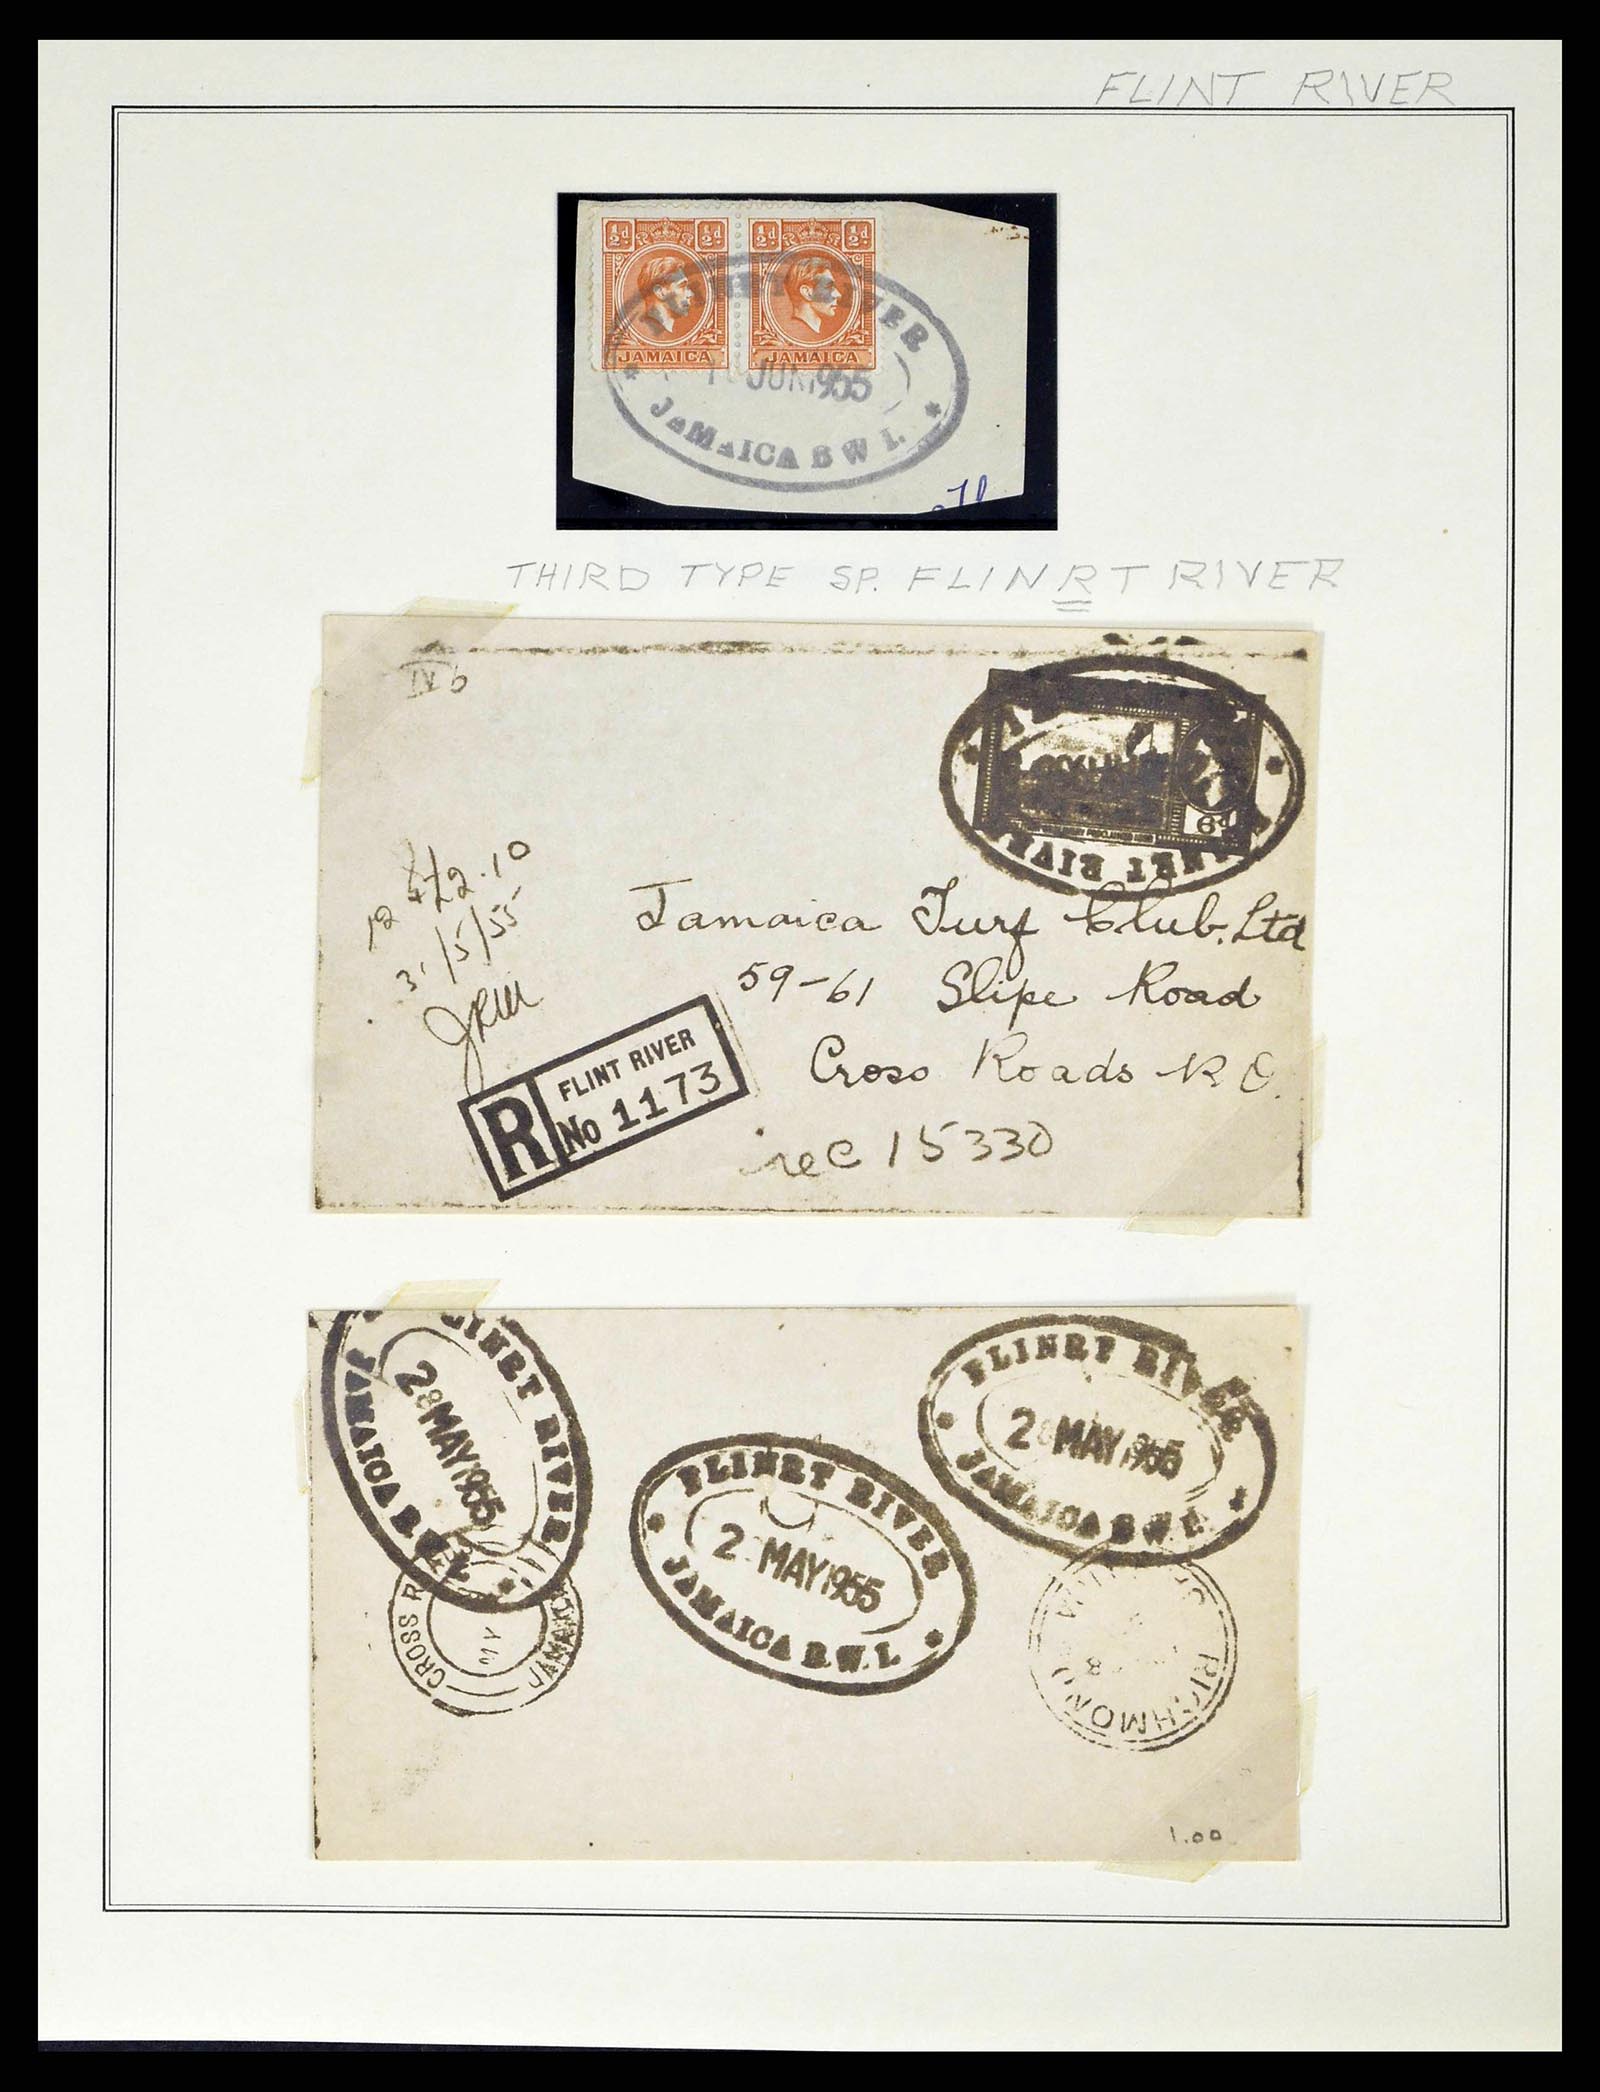 FLINT RIVER
½d ½d ½d ½d
JAMAICA JAMAICA
FLINRT RIVER
JUN 1955
JAMAICA B W I.
THIRD TYPE SP. FLINRT RIVER
IVb
6d
£2.10
31/5/55
Jamaica Turf Club. Ltd
59-61 Slipe Road
Cross Roads
R FLINT RIVER
No 1173
rec 15330
LINRT RIVER
28 MAY 1955
JAMAICA B W I.
FLINRT RIVER
2 MAY 1955
JAMAICA B.W.I.
FLINRT RIVER
2 MAY 1955
JAMAICA B W I.
CROSS R
JAMAICA
RICHMOND
1.00